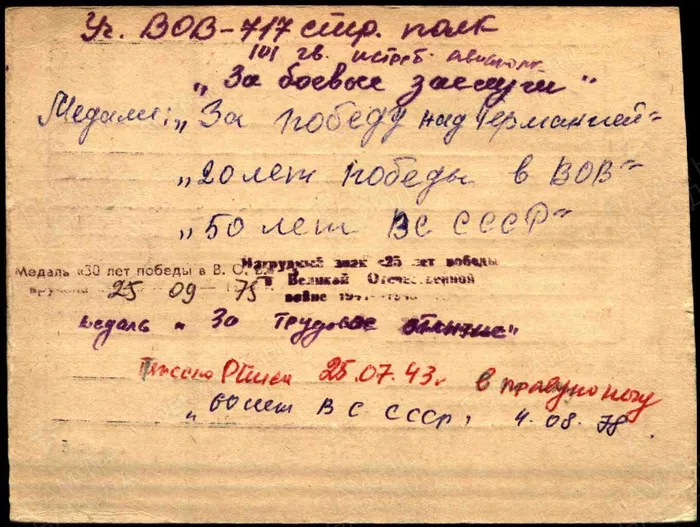 Уч. ВОВ-717 стр. полк
101 гв. истреб. авиаполк
„За боевые заслуги"
Медали: „За победу над Германией"
„20 лет победы в ВОВ"
„50 лет ВС СССР"
Нагрудный знак «25 лет победы
Медаль «30 лет победы в В. О.
в Великой Отечественной
вручена 25 09 - 75
войне 1941-1945
медаль „За трудовое отличие"
ранен 25.07.43. в правую ногу
„60 лет ВС СССР, 4.08.78